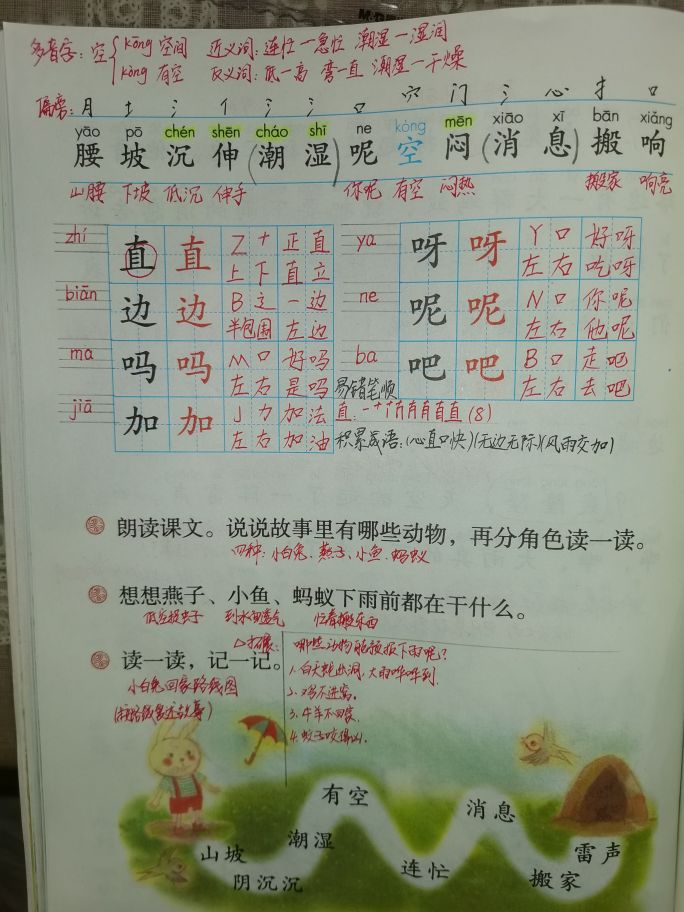 多音字：空{kōng 空间 近义词：连忙—急忙 潮湿—湿润
kòng 有空 反义词：低—高 弯—直 潮湿—干燥
偏旁：月 土 氵 亻 氵 氵 口 穴 门 氵 心 扌 口
yāo pō chén shēn cháo shī ne kòng mēn xiāo xī bān xiǎng
腰 坡 沉 伸(潮 湿)呢 空 闷(消 息)搬 响
山腰 下坡 低沉 伸手 你呢 有空 闷热 搬家 响亮
zhí 直 直 Z 十 正直
上下 直立
biān 边 边 B 辶 一边
半包围 左边
ma 吗 吗 M 口 好吗
左右 是吗
jiā 加 加 J 力 加法
左右 加油
ya 呀 呀 Y 口 好呀
左右 吃呀
ne 呢 呢 N 口 你呢
左右 他呢
ba 吧 吧 B 口 走吧
左右 去吧
易错笔顺
直： (8)
积累成语：(心直口快)(无边无际)(风雨交加)
朗读课文。说说故事里有哪些动物，再分角色读一读。
四种：小白兔、燕子、小鱼、蚂蚁
想想燕子、小鱼、蚂蚁下雨前都在干什么。
低空捉虫子 到水面透气 忙着搬东西
读一读，记一记。
小白兔回家路线图
△拓展：哪些动物能预报下雨呢？
1、 大雨哗哗到
2、鸡不进窝。
3、牛羊不回家。
4、蚊子咬得凶。
有空
消息
潮湿
山坡
雷声
连忙
阴沉沉
搬家